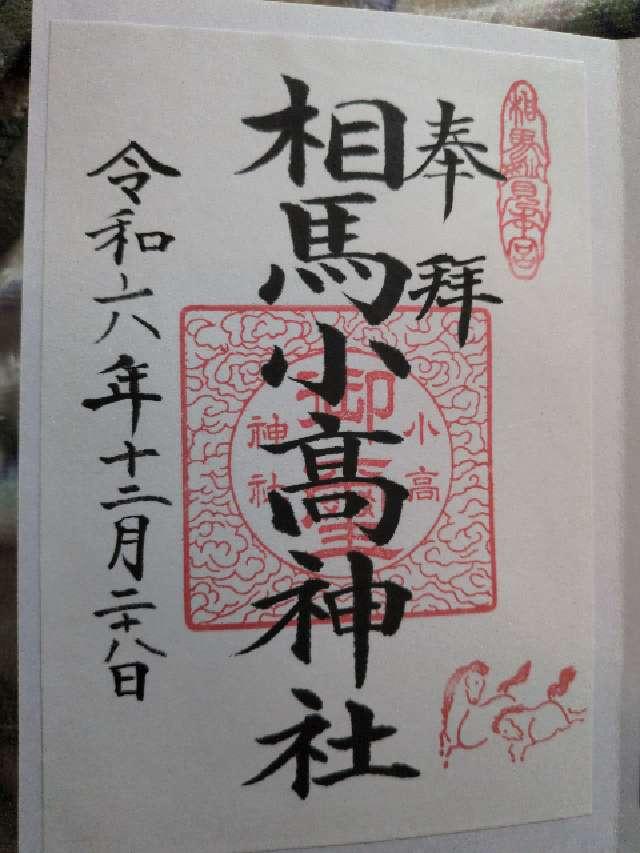 相馬妙見本宮
奉拝
相馬小高神社
小高
御璽
神社
令和六年十二月二十八日